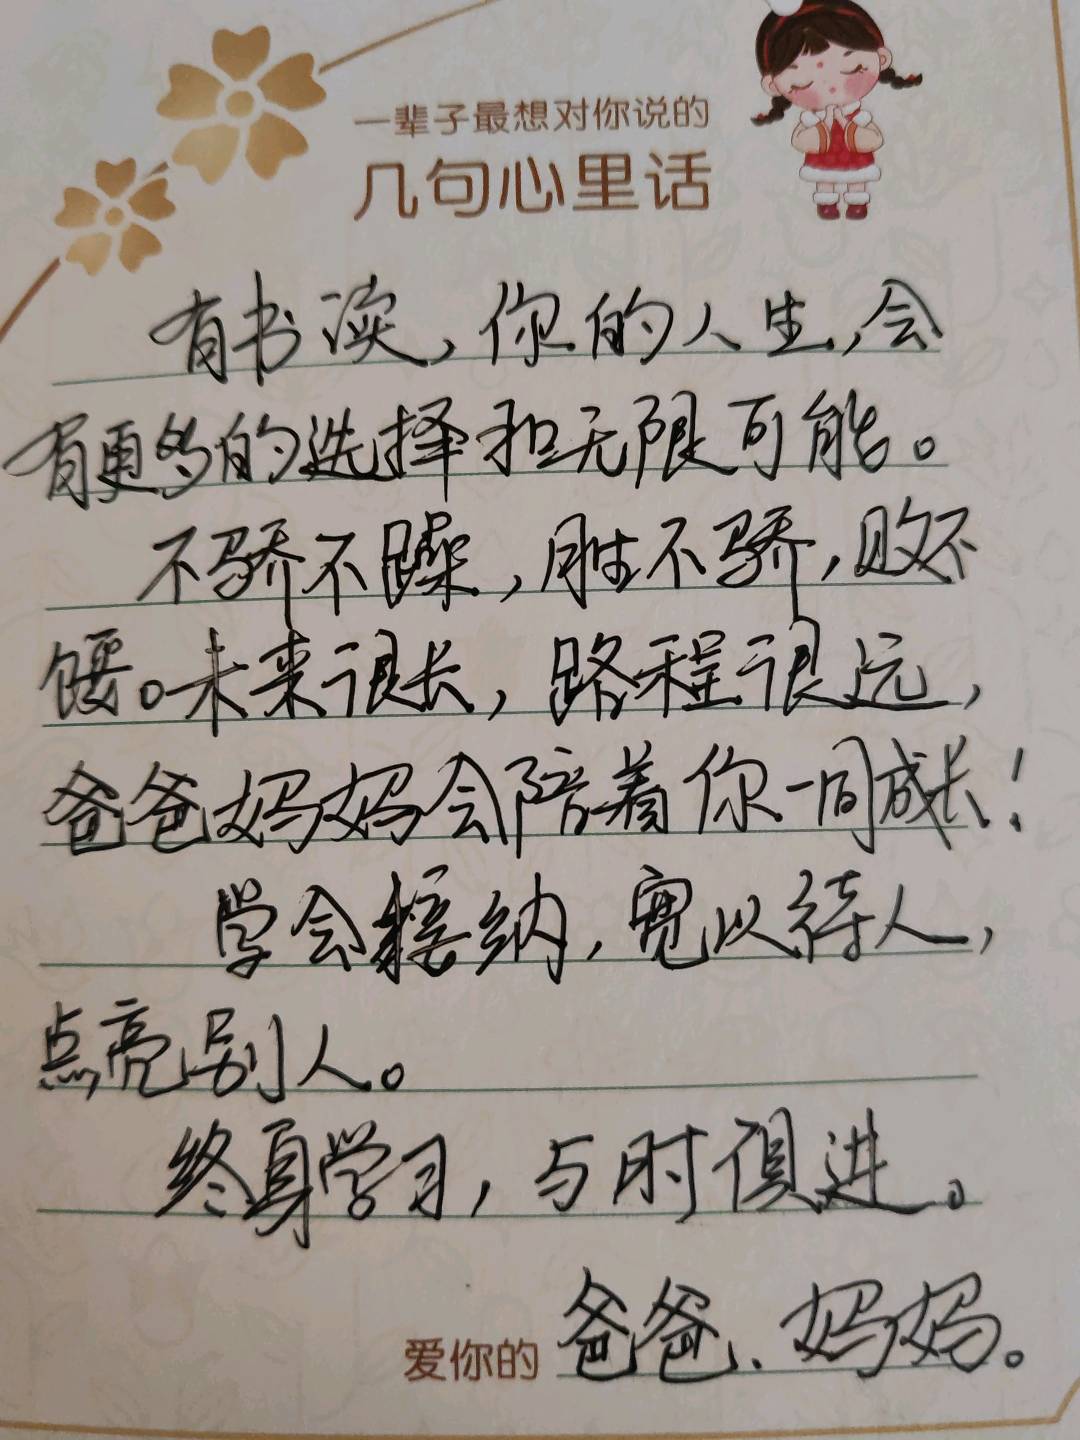 一辈子最想对你说的
几句心里话
有书读，你的人生，会
有更多的选择和无限可能。
不骄不躁，胜不骄，败不
馁。未来很长，路程很远，
爸爸妈妈会陪着你一同成长！
学会接纳，宽以待人，
点亮别人。
终身学习，与时俱进。
爱你的 爸爸、妈妈。